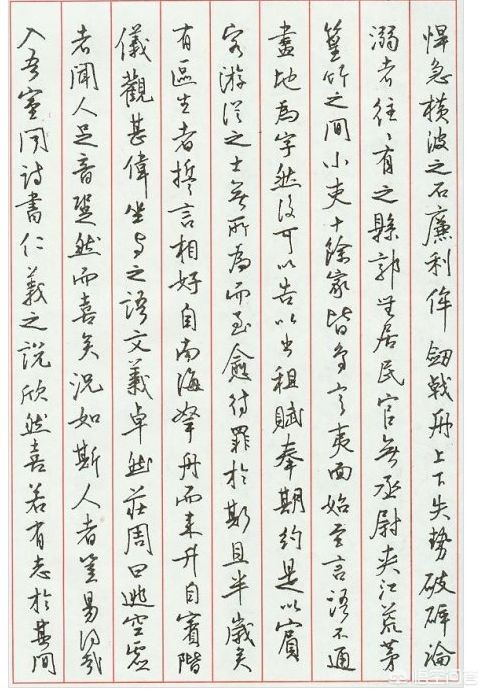 悍急橫波之石廉利侔劒戟舟上下失勢破碎淪
溺者往〻有之縣郭無居民官無丞尉夾江荒茅
篁竹之間小吏十餘家皆鳥言夷面始至言語不通
畫地為字然後可以告以出租賦奉期約是以賓
客游從之士無所為而至愈待罪於斯且半歲矣
有區生者誓言相好自南海拏舟而來升自賓階
儀觀甚偉坐與之語文義卓然莊周曰逃空虛
者聞人足音跫然而喜矣況如斯人者豈易得哉
入吾室聞詩書仁義之說欣然喜若有志於其間